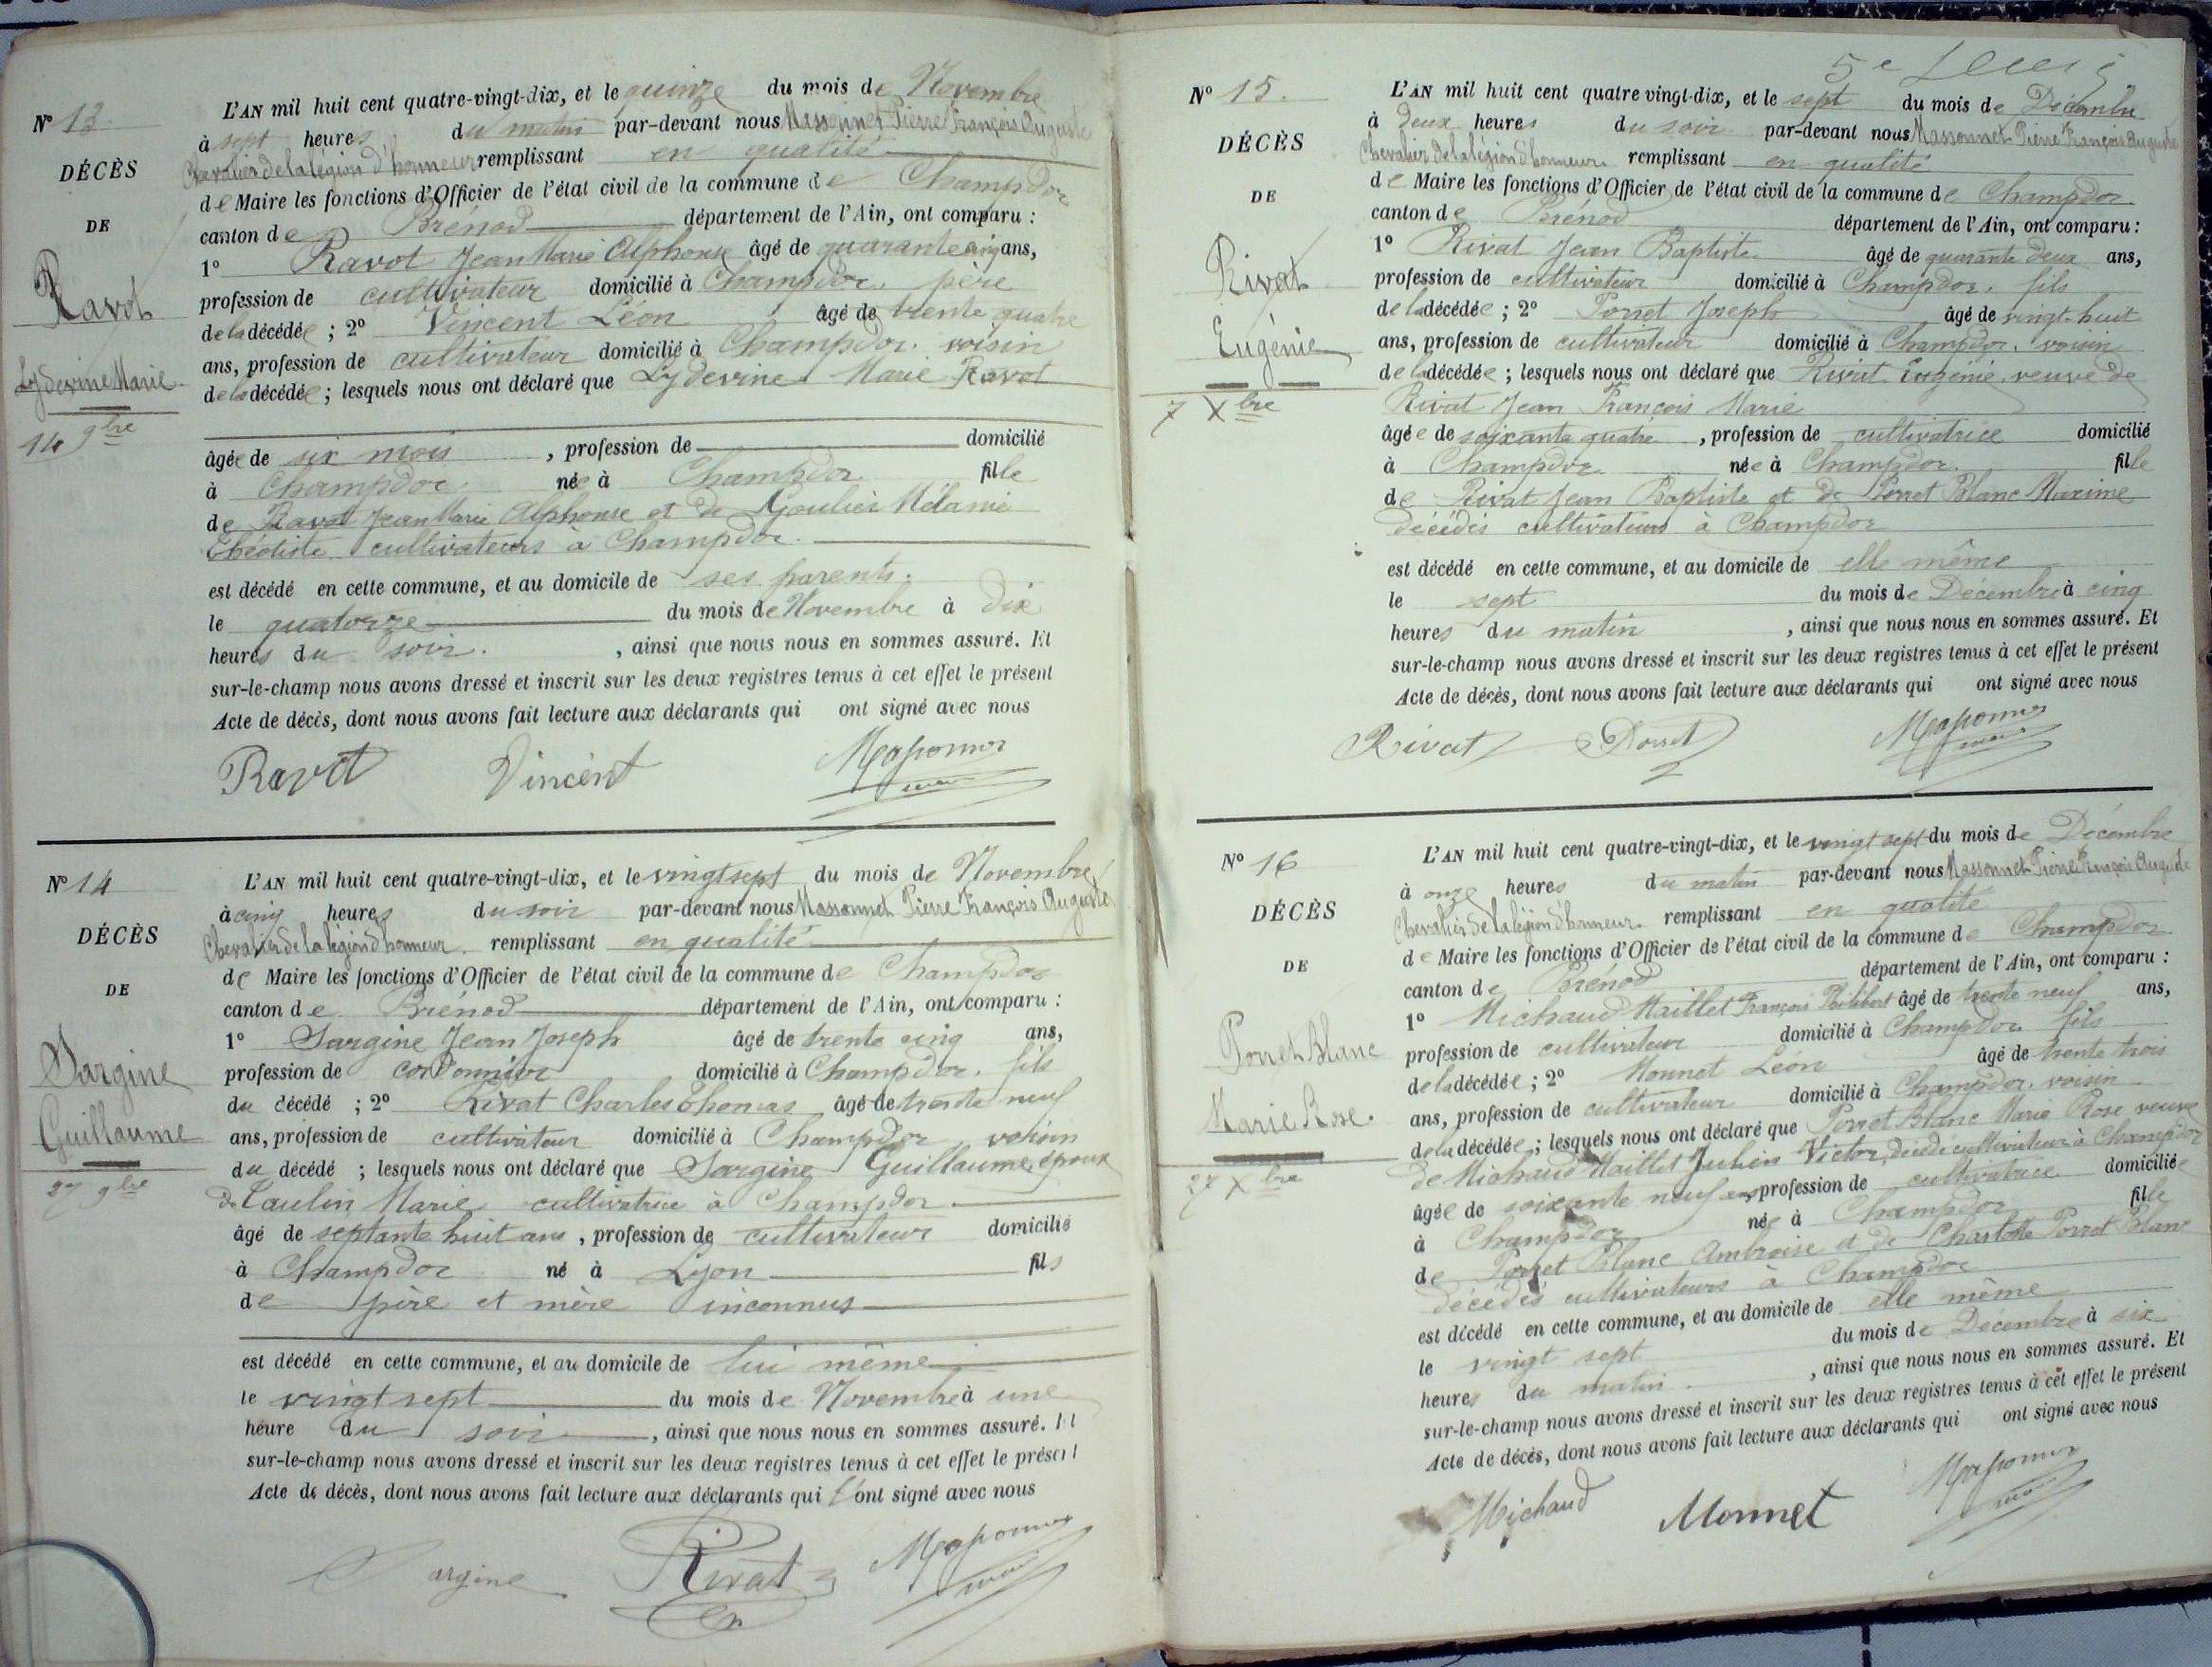 N° 13
DÉCÈS
DE
Ravot
Lydevine Marie
14 9bre
L'AN mil huit cent quatre-vingt-dix, et le quinze du mois de Novembre
à sept heures du matin par-devant nous Massonnet Pierre François Auguste
Chevalier de la légion d'honneur remplissant en qualité
de Maire les fonctions d'Officier de l'état civil de la commune de Champdor
canton de Brénod département de l'Ain, ont comparu :
1° Ravot Jean Marie Alphonse âgé de quarante cinq ans,
profession de cultivateur domicilié à Champdor, père
de la décédée ; 2° Vincent Léon âgé de trente quatre
ans, profession de cultivateur domicilié à Champdor, voisin
de la décédée ; lesquels nous ont déclaré que Lydevine Marie Ravot
âgée de six mois , profession de domicilié
à Champdor née à Champdor fille
de Ravot Jean Marie Alphonse et de Goulier Mélanie
cultivateurs à Champdor.
est décédé en cette commune, et au domicile de ses parents.
le quatorze du mois de Novembre à dix
heures du soir. , ainsi que nous nous en sommes assuré. Et
sur-le-champ nous avons dressé et inscrit sur les deux registres tenus à cet effet le présent
Acte de décès, dont nous avons fait lecture aux déclarants qui ont signé avec nous
Ravot Vincent Massonnet
maire
N° 14
DÉCÈS
DE
Sargine
Guillaume
27 9bre
L'AN mil huit cent quatre-vingt-dix, et le vingt sept du mois de Novembre
à cinq heures du soir par-devant nous Massonnet Pierre François Auguste
Chevalier de la légion d'honneur remplissant en qualité
de Maire les fonctions d'Officier de l'état civil de la commune de Champdor
canton de Brénod département de l'Ain, ont comparu :
1° Sargine Jean Joseph âgé de trente cinq ans,
profession de cordonnier domicilié à Champdor, fils
du décédé ; 2° Rivat Charles Thomas âgé de trente neuf
ans, profession de cultivateur domicilié à Champdor, voisin
du décédé ; lesquels nous ont déclaré que Sargine Guillaume, époux
de Taulin Marie cultivatrice à Champdor
âgé de septante huit ans , profession de cultivateur domicilié
à Champdor né à Lyon fils
de père et mère inconnus
est décédé en cette commune, et au domicile de lui même
le vingt sept du mois de Novembre à une
heure du soir , ainsi que nous nous en sommes assuré. Et
sur-le-champ nous avons dressé et inscrit sur les deux registres tenus à cet effet le présent
Acte de décès, dont nous avons fait lecture aux déclarants qui ont signé avec nous
Sargine Rivat Massonnet
maire
N° 15.
DÉCÈS
DE
Rivat
Eugénie
7 Xbre
L'AN mil huit cent quatre vingt-dix, et le sept du mois de Décembre
à deux heures du soir par-devant nous Massonnet Pierre François Auguste
Chevalier de la légion d'honneur remplissant en qualité
de Maire les fonctions d'Officier de l'état civil de la commune de Champdor
canton de Brénod département de l'Ain, ont comparu :
1° Rivat Jean Baptiste âgé de quarante deux ans,
profession de cultivateur domicilié à Champdor, fils
de la décédée ; 2° Porret Joseph âgé de vingt-huit
ans, profession de cultivateur domicilié à Champdor, voisin
de la décédée ; lesquels nous ont déclaré que Rivat Eugénie, veuve de
Rivat Jean François Marie
âgée de soixante quatre , profession de cultivatrice domicilié
à Champdor née à Champdor. fille
de Rivat Jean Baptiste et de Porret Blanc Maxime
décédés cultivateurs à Champdor
est décédé en cette commune, et au domicile de elle même
le sept du mois de Décembre à cinq
heures du matin , ainsi que nous nous en sommes assuré. Et
sur-le-champ nous avons dressé et inscrit sur les deux registres tenus à cet effet le présent
Acte de décès, dont nous avons fait lecture aux déclarants qui ont signé avec nous
Rivat Porret Massonnet
maire
N° 16
DÉCÈS
DE
Porret Blanc
Marie Rose.
27 Xbre
L'AN mil huit cent quatre-vingt-dix, et le vingt sept du mois de Décembre
à onze heures du matin par-devant nous Massonnet Pierre François Auguste
Chevalier de la légion d'honneur remplissant en qualité
de Maire les fonctions d'Officier de l'état civil de la commune de Champdor
canton de Brénod département de l'Ain, ont comparu :
1° Michaud Maillet François Philibert âgé de trente neuf ans,
profession de cultivateur domicilié à Champdor fils
de la décédée ; 2° Monnet Léon âgé de trente trois
ans, profession de cultivateur domicilié à Champdor, voisin
de la décédée ; lesquels nous ont déclaré que Porret Blanc Marie Rose veuve
de Michaud Maillet Julien Victor, décédé cultivateur à Champdor
âgée de soixante neuf ans profession de cultivatrice domiciliée
à Champdor née à Champdor fille
de Porret Blanc Ambroise et de Charlotte Porret Blanc
décédés cultivateurs à Champdor
est décédé en cette commune, et au domicile de elle même
le vingt sept du mois de Décembre à six
heures du matin , ainsi que nous nous en sommes assuré. Et
sur-le-champ nous avons dressé et inscrit sur les deux registres tenus à cet effet le présent
Acte de décès, dont nous avons fait lecture aux déclarants qui ont signé avec nous
Michaud Monnet Massonnet
maire